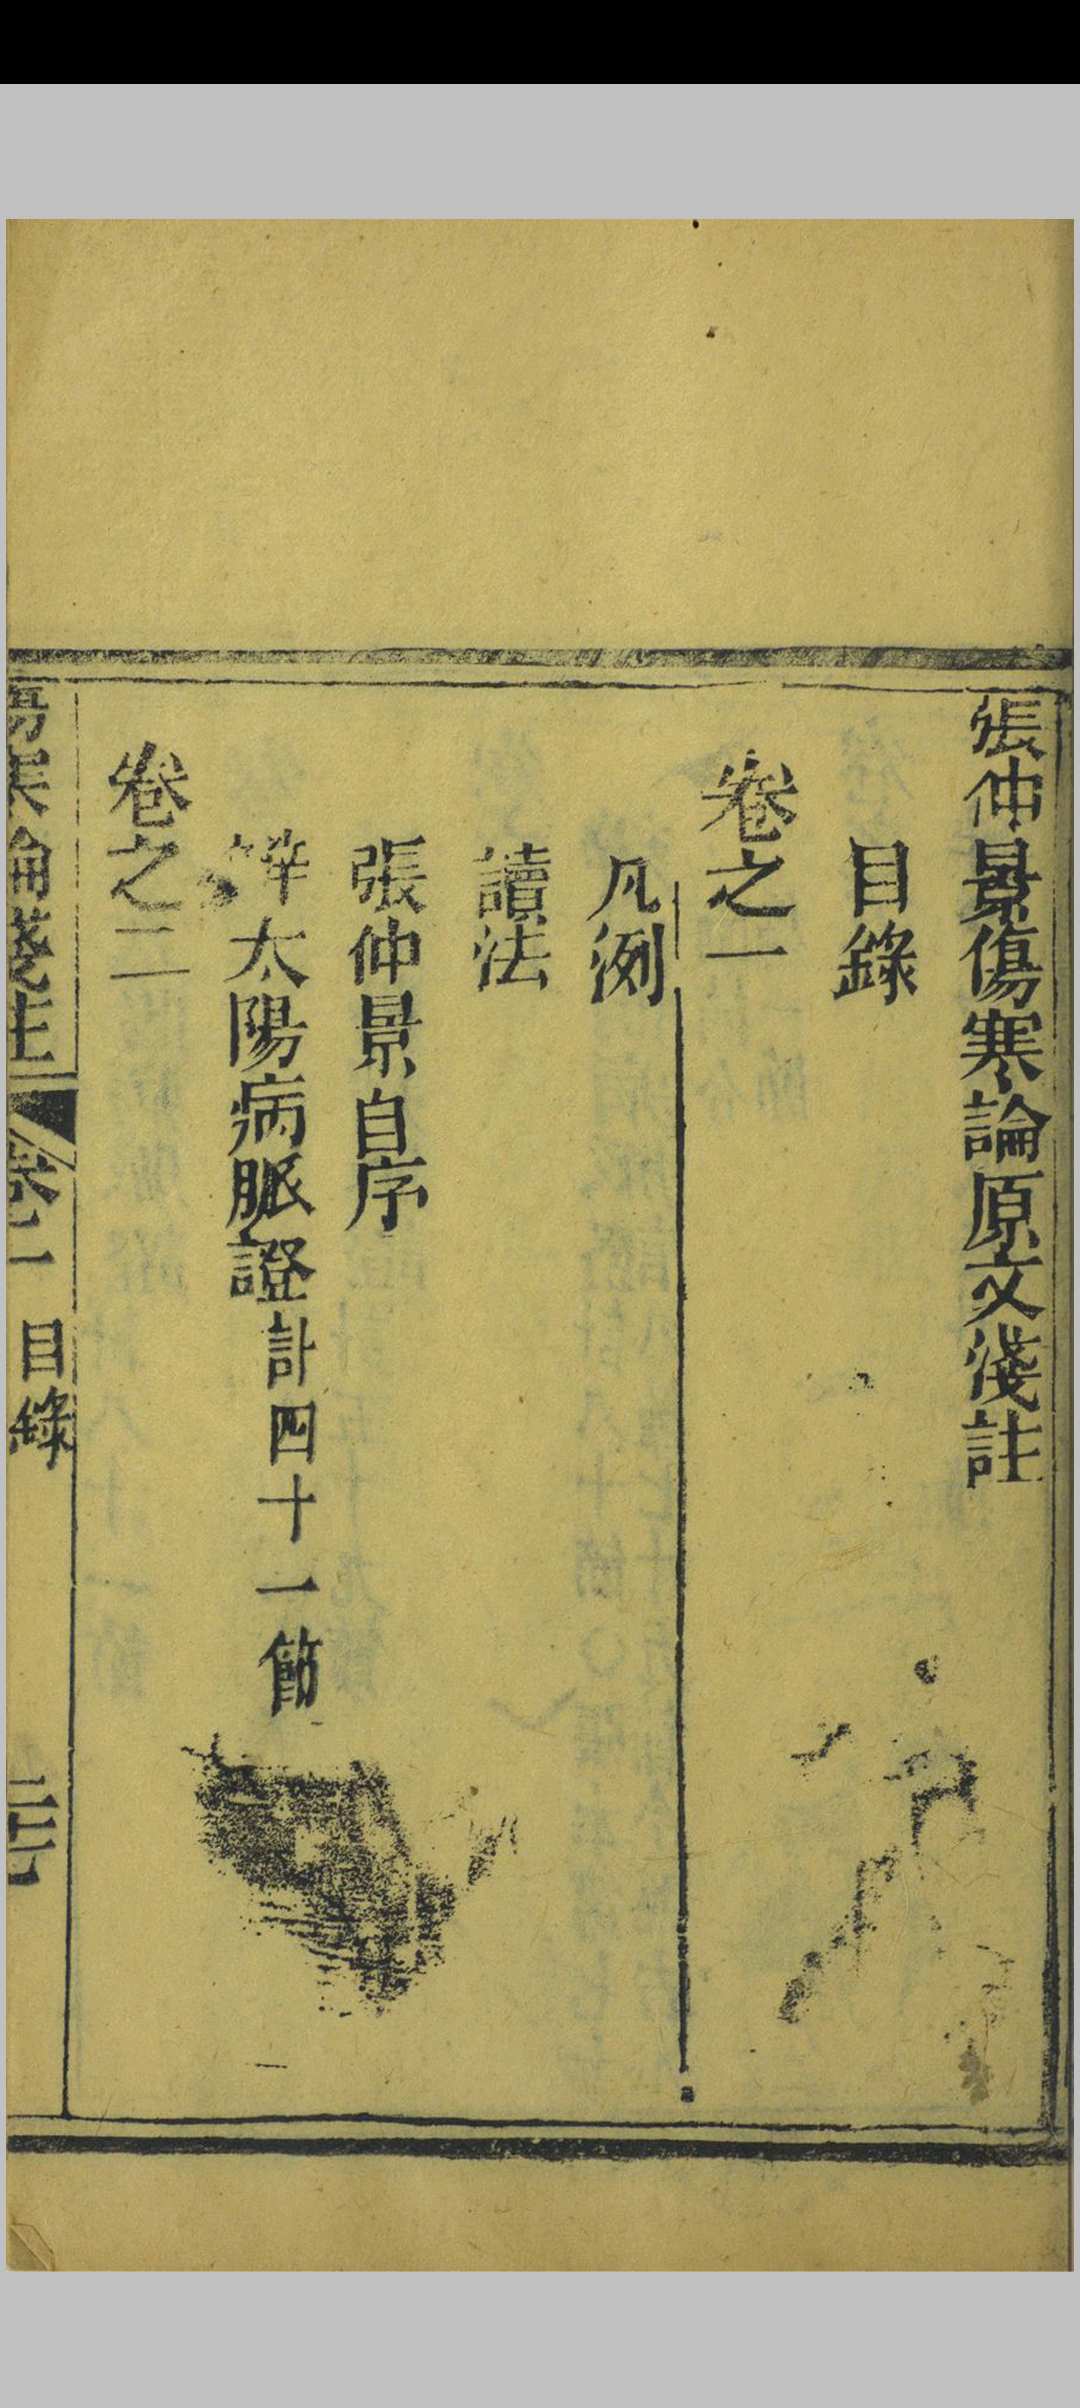 張仲景傷寒論原文淺註
目錄
卷之一
凡例
讀法
張仲景自序
辨太陽病脈證計四十一節
卷之二
傷寒論淺註 卷一 目錄